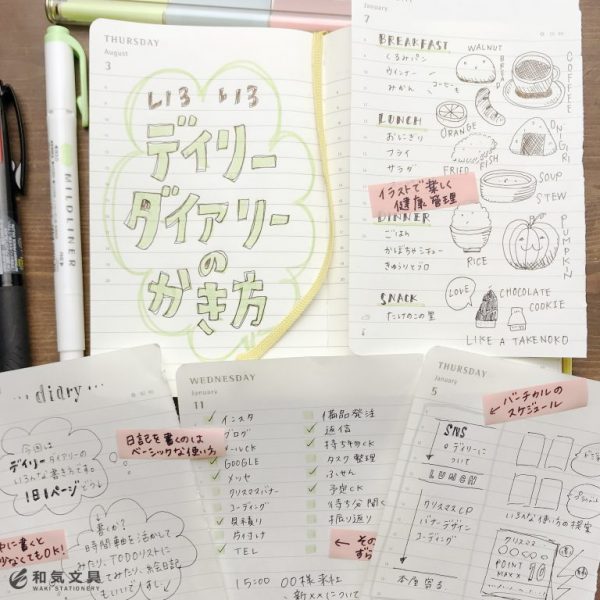 THURSDAY
August
3
いろ いろ
デイリー
ダイアリー
の
かき方
MILDLINER
7
January
BREAKFAST
くるみパン
ウインナー
みかん
コーヒーも
WALNUT
BREAD
COFFEE
ORANGE
LUNCH
おにぎり
フライ
サラダ
FRIED FISH
ONIGIRI
SOUP
STEW
イラストで楽しく
健康管理
DINNER
ごはん
かぼちゃシチュー
きゅうりとツロ
RICE
PUMPKIN
SNACK
たけのこの里
LOVE
CHOCOLATE
COOKIE
LIKE A TAKENOKO
THURSDAY
January
...diary...
今回は
デイリーダイアリーの
いろんな書き方です。
1日1ページだっ!
日記を書くのは
ベーシックな使い方
書くと
少なくてもOK!
書くか?
時間軸を活かして
みたり、TODOリストに
してみたり、絵日記
もいいですし。
和気文具
WAKI STATIONERY
WEDNESDAY
January
11
インスタ
ブログ
メールCK
GOOGLE
メッセ
クリスマスバナー
コーディング
見本積り
片付け
TEL
備品発注
返信
持ち物CK
タスク整理
ふせん
予定CK
待ち分聞く
振り返り
その
ずら
15:00 〇〇様来社
新××について
THURSDAY
January
5
バーチカルの
スケジュール
SNS
デイリーに
ついて
LUNCH
クリスマスCP
バナーデザイン
コーディング
本店寄る
いろんな使い方の提案
クリスマス
POINT
MAX 10